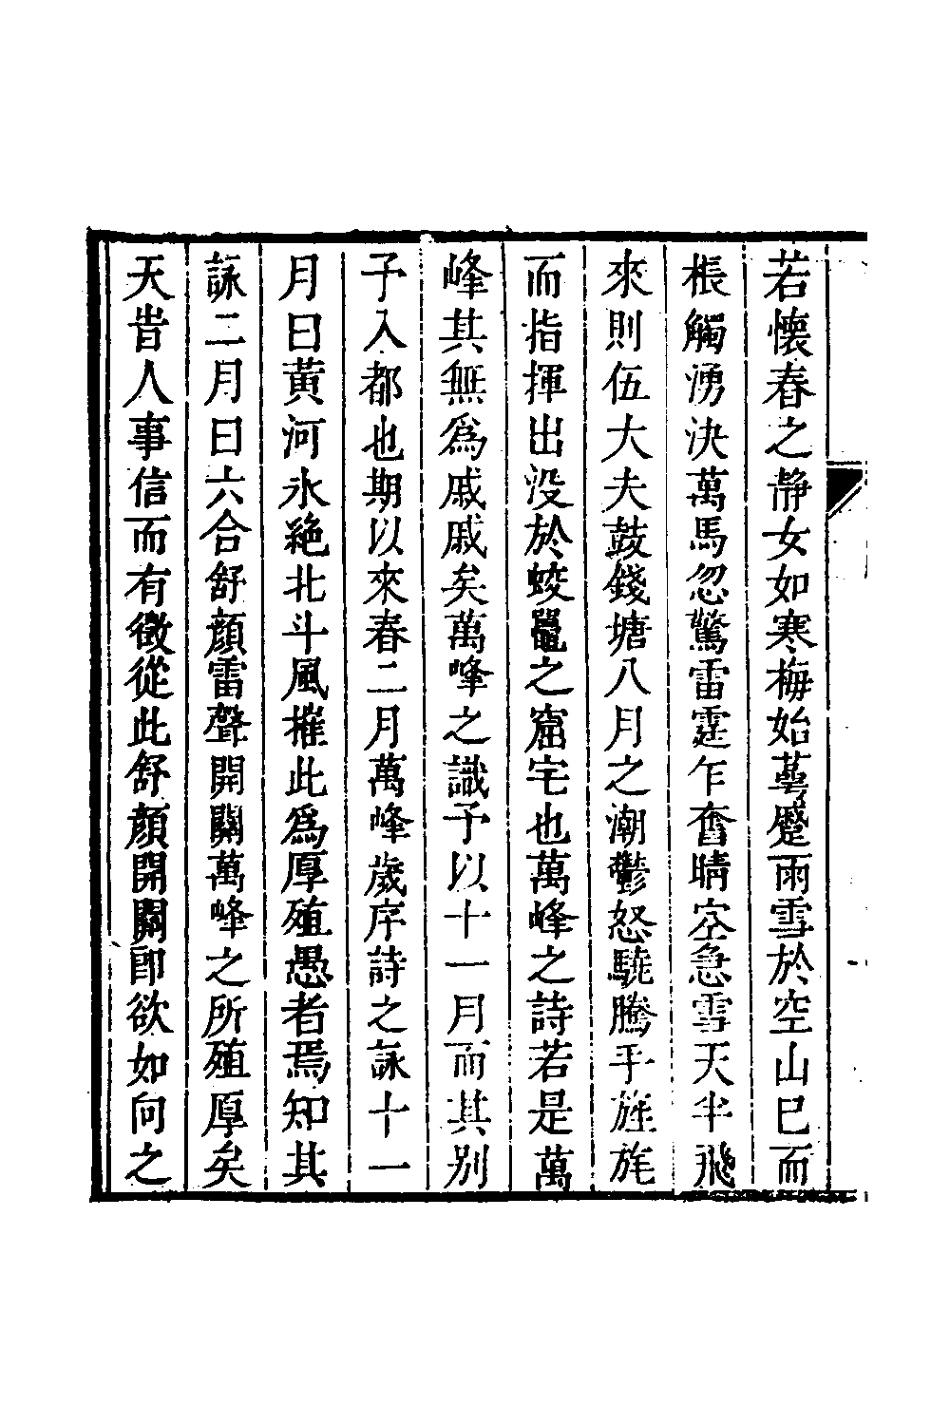 若懷春之靜女如寒梅始萼蹙雨雪於空山已而
棖觸湧決萬馬忽驚雷霆乍奮晴空急雪天半飛
來則伍大夫鼓錢塘八月之潮鬱怒驍騰乎旌旄
而指揮出没於蛟鼉之窟宅也萬峰之詩若是萬
峰其無為戚戚矣萬峰之識予以十一月而其别
予入都也期以來春二月萬峰歲序詩之詠十一
月曰黃河氷絶北斗風摧此為厚殖愚者焉知其
詠二月曰六合舒顔雷聲開闢萬峰之所殖厚矣
天昔人事信而有徵從此舒顔開闢卽欲如向之